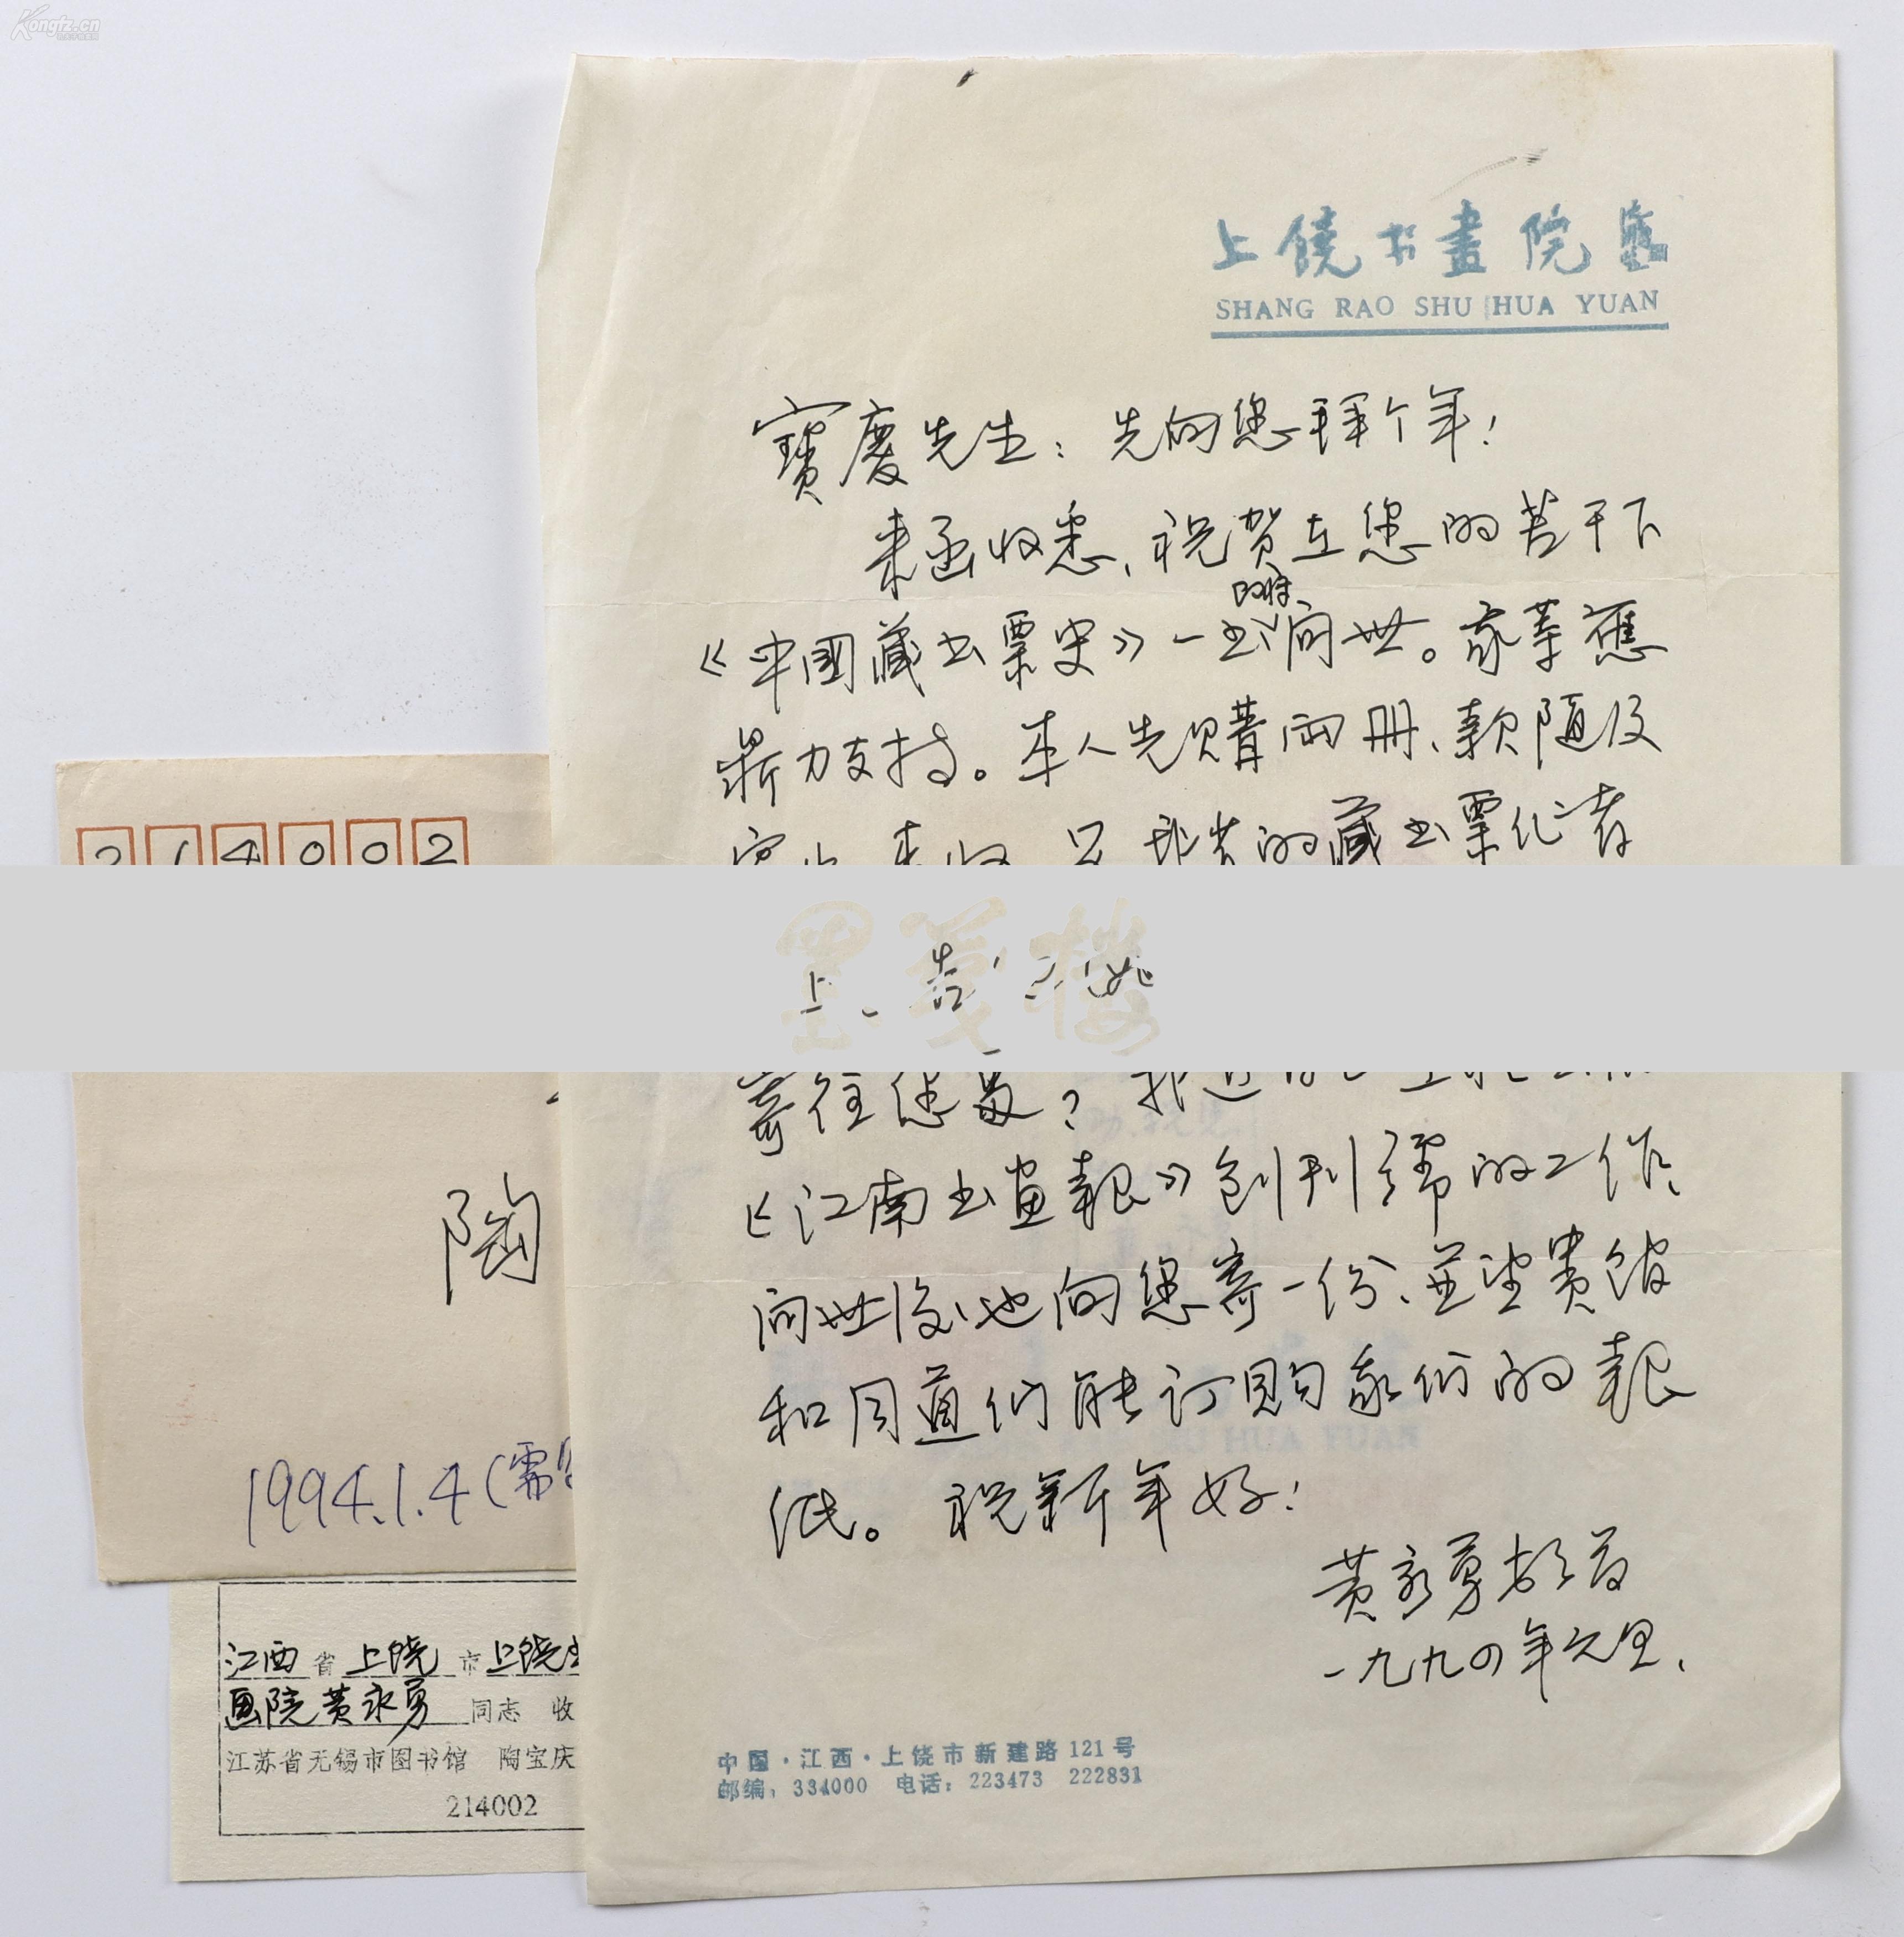 Kongfz.cn
上饶书畫院
SHANG RAO SHU HUA YUAN
寶慶先生：先向您拜个年！
来函收悉、祝贺在您的苦干下
《中國藏书票史》一书的将问世。我等應
鼎力支持。本人先购两册、款随后
的藏书票作者
214002
墨笺楼
寄往您处？我近
《江南书画報》创刊号的工作、
问世后也向您寄一份、並望贵馆
和同道们能订购我们的報
纸。祝新年好！
黄永勇
一九九四年元旦、
陶
1994.1.4（需
江西省上饶市上饶书
画院黄永勇同志 收
江苏省无锡市图书馆 陶宝庆
214002
中国·江西·上饶市新建路121号
邮编：334000 电话：223473 222831